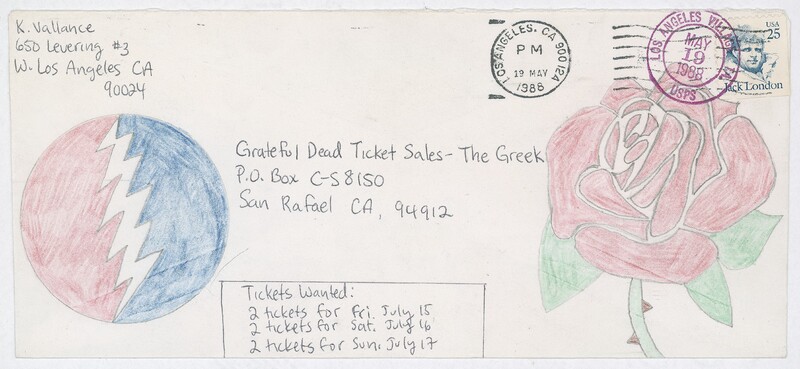 K. Vallance
650 Levering #3
W. Los Angeles CA
90024
LOS ANGELES, CA 900 12A
PM
19 MAY
1988
LOS ANGELES VILLAGE STA.
MAY
19
1988
USPS
USA
25
Jack London
Grateful Dead Ticket Sales - The Greek
P.O. Box C-S8150
San Rafael CA, 94912
Tickets Wanted:
2 tickets for Fri. July 15
2 tickets for Sat. July 16
2 tickets for Sun. July 17